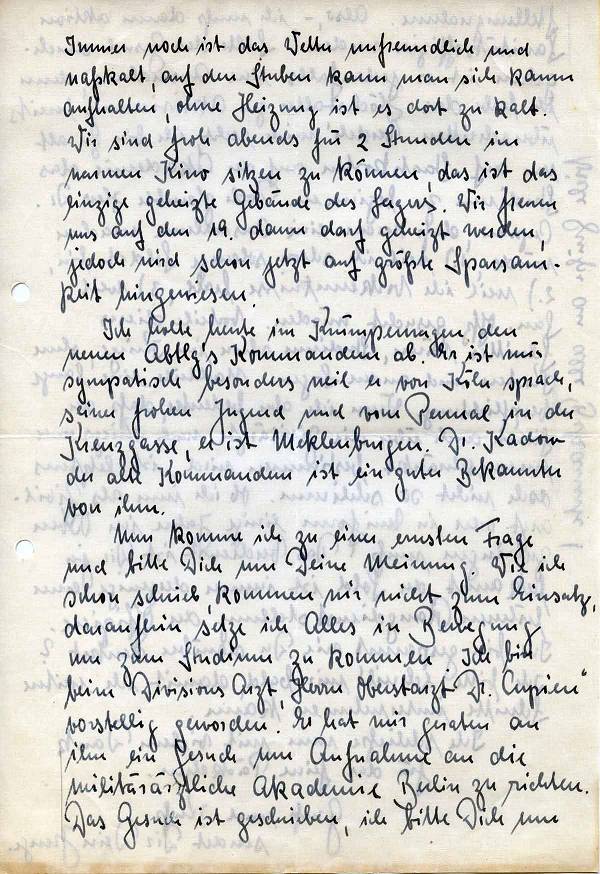 Immer noch ist das Wetter unfreundlich und
naßkalt, auf den Stuben kann man sich kaum
aufhalten, ohne Heizung ist es dort zu kalt.
Wir sind froh abends für 2 Stunden im
warmen Kino sitzen zu können, das ist das
einzige geheizte Gebäude des Lagers. Wir freuen
uns auf den 19. dann darf geheizt werden,
jedoch wird schon jetzt auf größte Sparsam-
keit hingewiesen.
Ich holte heute im Krümperwagen den
neuen Abtlg's Kommandeur ab. Er ist mir
sympatisch besonders weil er von Köln sprach,
seiner frohen Jugend und vom Pennal in der
Kreuzgasse, er ist Meklenburger. Dr. Kadow
der alte Kommandeur ist ein guter Bekannter
von ihm.
Nun komme ich zu einer ernsten Frage
und bitte Dich um Deine Meinung. Wie ich
schon schrieb, kommen wir nicht zum Einsatz,
daraufhin setze ich Alles in Bewegung
um zum Studium zu kommen. Ich bin
beim Divisions Arzt, Herrn Oberstarzt Dr.
vorstellig geworden. Er hat mir geraten an
ihn ein Gesuch um Aufnahme an die
militärärztliche Akademie Berlin zu richten.
Das Gesuch ist geschrieben, ich bitte Dich um